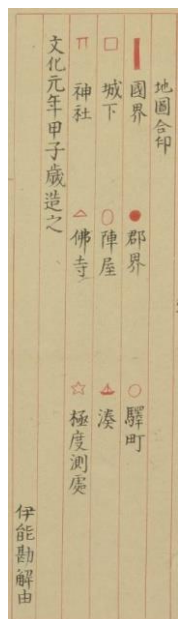 地圖合印
國界 郡界 驛町
城下 陣屋 湊
神社 佛寺 極度測處
文化元年甲子歲造之
伊能勘解由